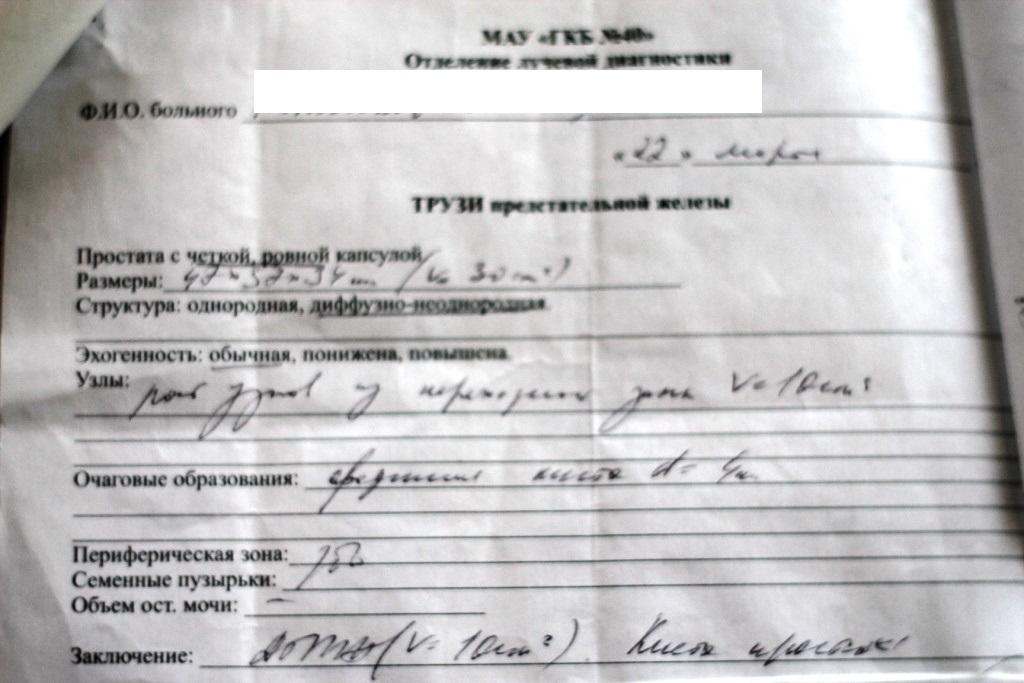 МАУ «ГКБ №40»
Отделение лучевой диагностики
Ф.И.О. больного
«22» марта
ТРУЗИ предстательной железы
Простата с четкой, ровной капсулой
Размеры: 47*37*34 мм (V= 30 cm³)
Структура: однородная, диффузно-неоднородная
Эхогенность: обычная, понижена, повышена
Узлы: рост узлов из переходной зоны V=10cm³
Очаговые образования: срединная киста d= 4мм
Периферическая зона:
Семенные пузырьки:
Объем ост. мочи: –
Заключение: (V= 10cm³). Киста простаты